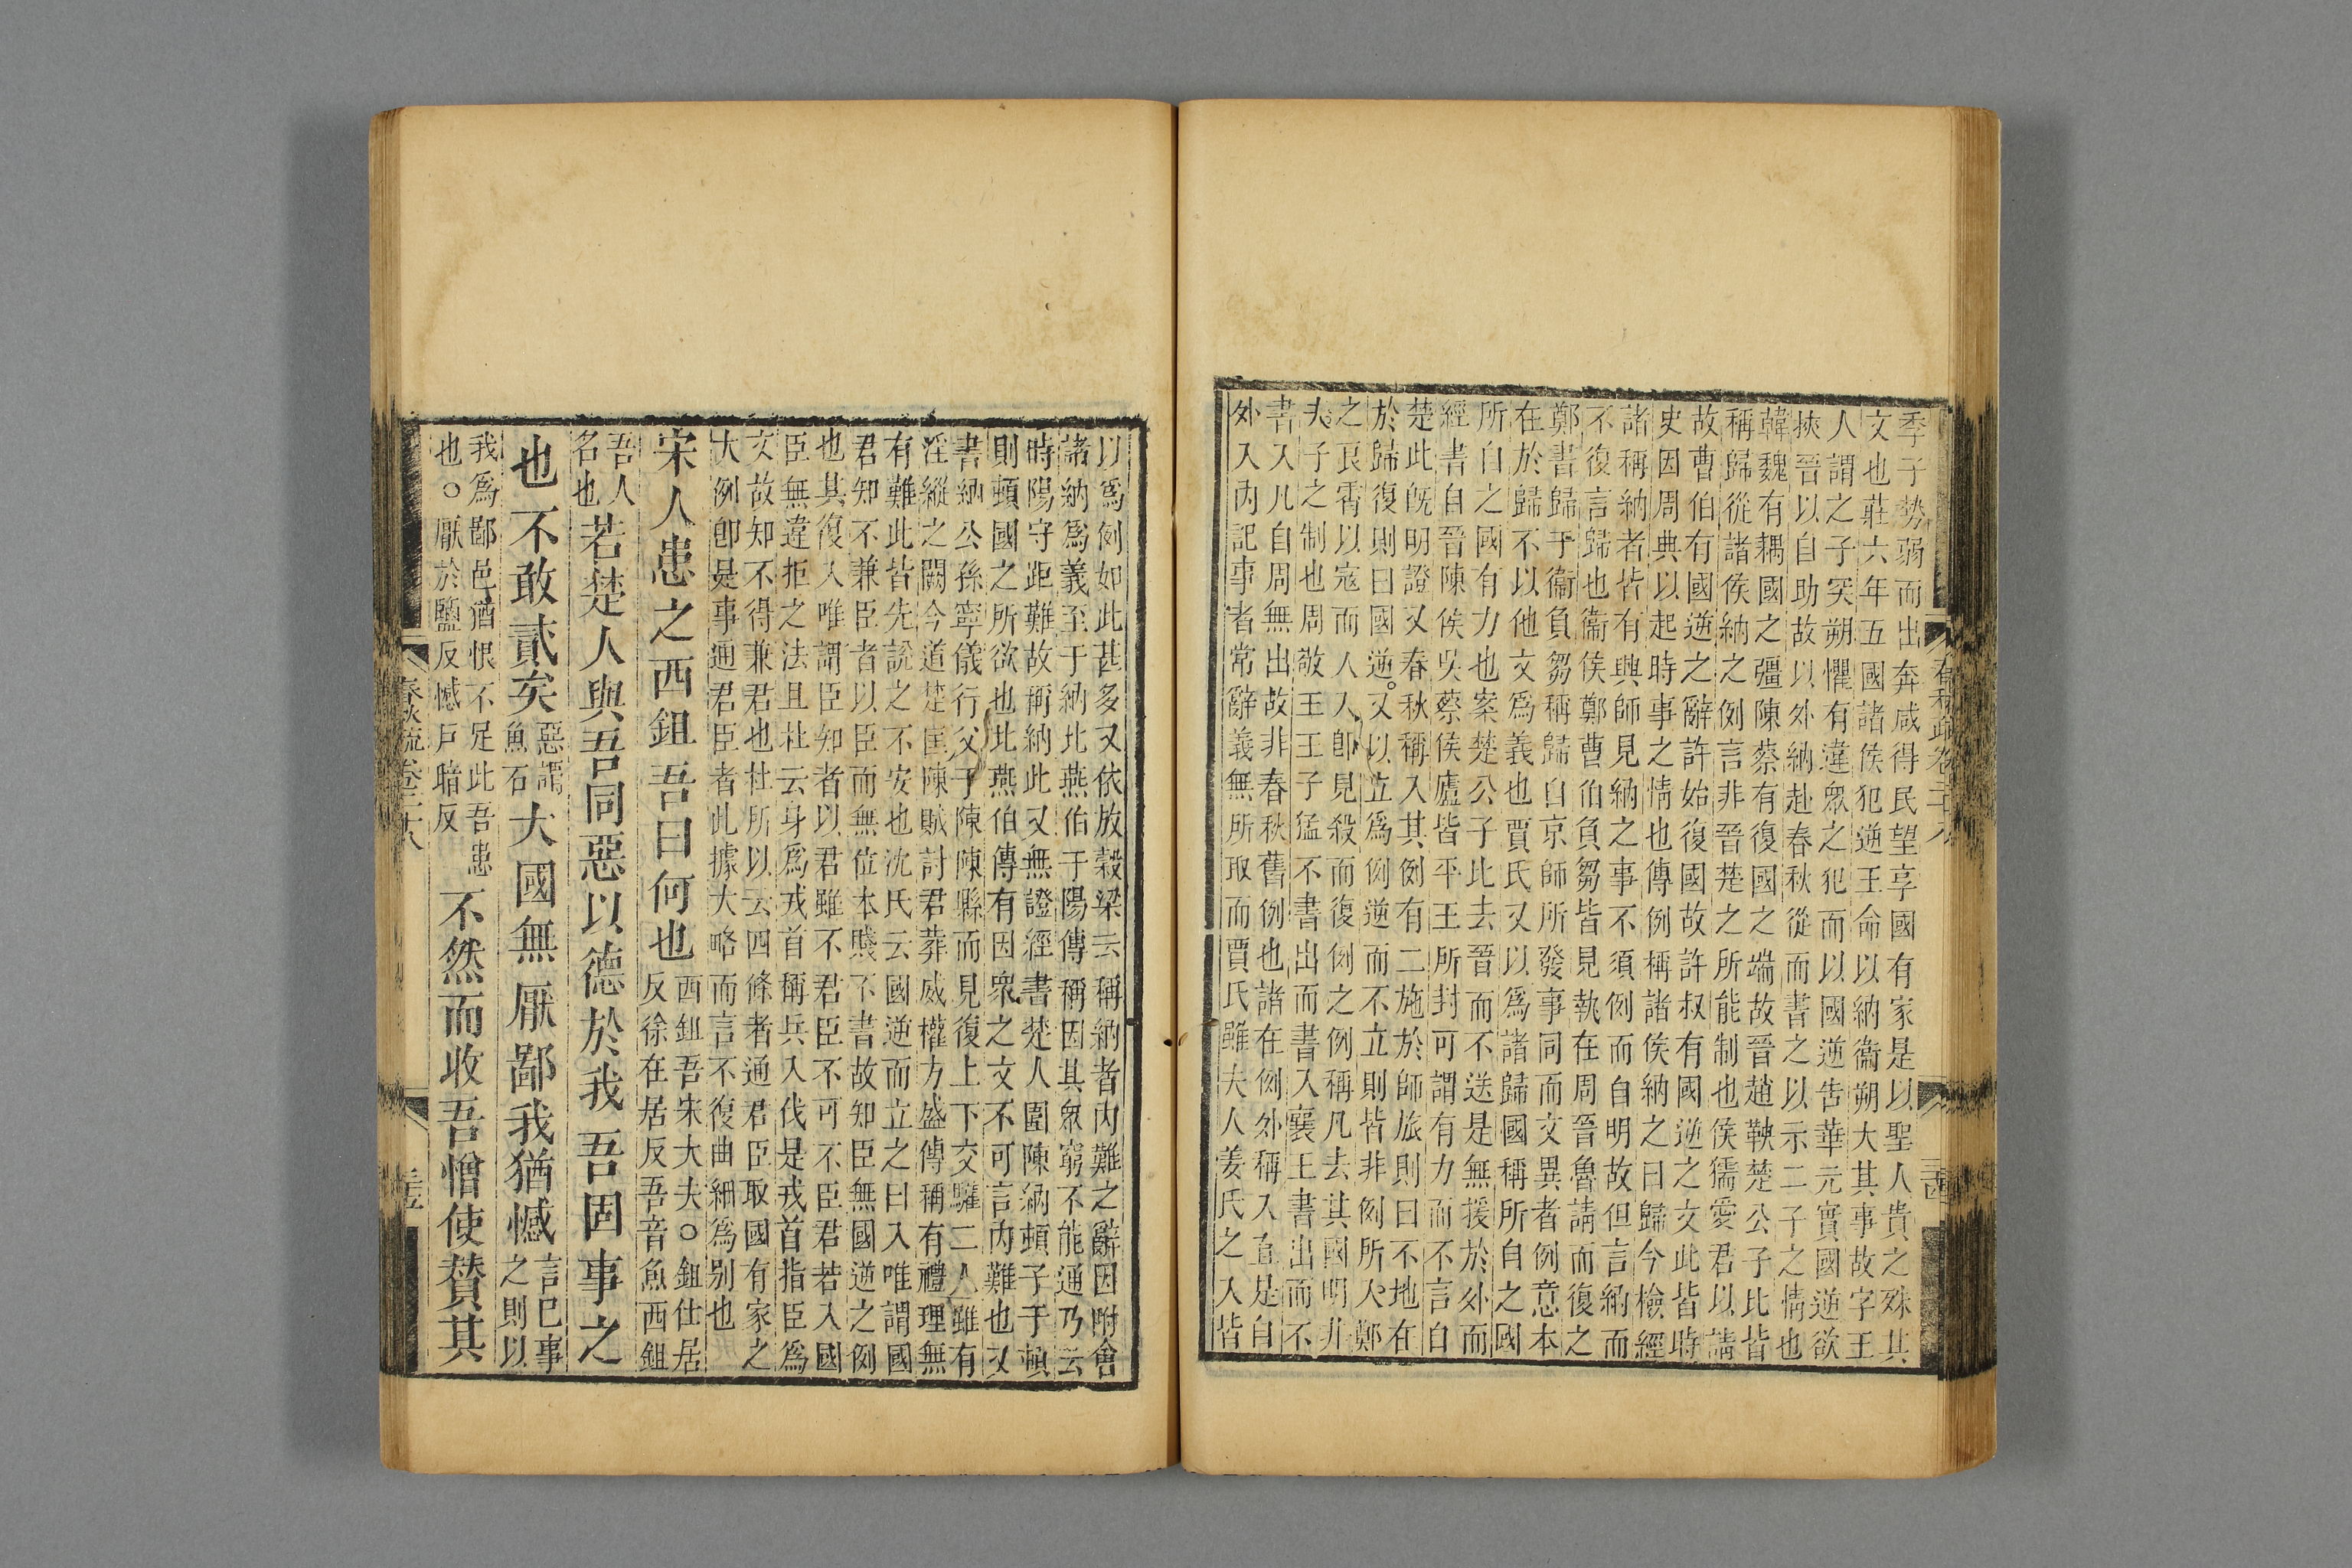 季子勢弱而出奔咸得民望享國有家是以聖人貴之殊其
文也莊六年五國諸侯犯逆王命以納衞朔大其事故字王
人謂之子突朔懼有違眾之犯而以國逆告華元實國逆欲
挾晉以自助故以外納赴春秋從而書之以示二子之情也
韓魏有耦國之彊陳蔡有復國之端故晉趙鞅楚公子比皆
稱歸從諸侯納之例言非晉楚之所能制也侯獳愛君以請
故曹伯有國逆之辭許始復國故許叔有國逆之文此皆時
史因周典以起時事之情也傳例稱諸侯納之曰歸今檢經
諸稱納者皆有興師見納之事不須例而自明故但言納而
不復言歸也衞侯鄭曹伯負芻皆見執在周晉魯請而復之
鄭書歸于衞負芻稱歸自京師所發事同而文異者例意本
在於歸不以他文爲義也賈氏又以爲諸歸國稱所自之國
所自之國有力也案楚公子比去晉而不送是無援於外而
經書自晉陳侯吳蔡侯廬皆平王所封可謂有力而不言自
楚此旣明證又春秋稱入其例有二施於師旅則曰不地在
於歸復則曰國逆。又以立爲例逆而不立則皆非例所入鄭
之良霄以寇而入入卽見殺而復例之例稱凡去其國明非
夫子之制也周敬王王子猛不書出而書入襄王書出而不
書入凡自周無出故非春秋舊例也諸在例外稱入直是自
外入內記事者常辭義無所取而賈氏雖夫人姜氏之入皆
春秋疏卷二十八
二十四
以爲例如此甚多又依放穀梁云稱納者內難之辭因附會
諸納爲義至于納北燕伯于陽傳稱因其眾窮不能通乃云
時陽守距難故稱納此又無證經書楚人圍陳納頓子于頓
則頓國之所欲也北燕伯傳有因眾之文不可言內難也又
書納公孫寧儀行父于陳陳縣而見復上下交驩二人雖有
淫縱之闕今道楚匡陳賊討君葬威權方盛傳稱有禮理無
有難此皆先說之不安也沈氏云國逆而立之曰入唯謂國
君知不兼臣者以臣而無位本賤不書故知臣無國逆之例
也其復入唯謂臣知者以君雖不君臣不可不臣君若入國
臣無違拒之法且杜云身爲戎首稱兵入伐是戎首指臣爲
文故知不得兼君也杜所以云四條者通君臣取國有家之
大例卽是事通君臣者此據大略而言不復曲細爲別也
宋人患之西鉏吾曰何也西鉏吾宋大夫○鉏仕居反徐在居反吾音魚西鉏
吾人名也若楚人與吾同惡以德於我吾固事之
也不敢貳矣惡謂魚石大國無厭鄙我猶憾言己事之則以
我爲鄙邑猶恨不足此吾患也○厭於鹽反憾戶暗反不然而收吾憎使贊其
春秋疏卷二十八
二十五